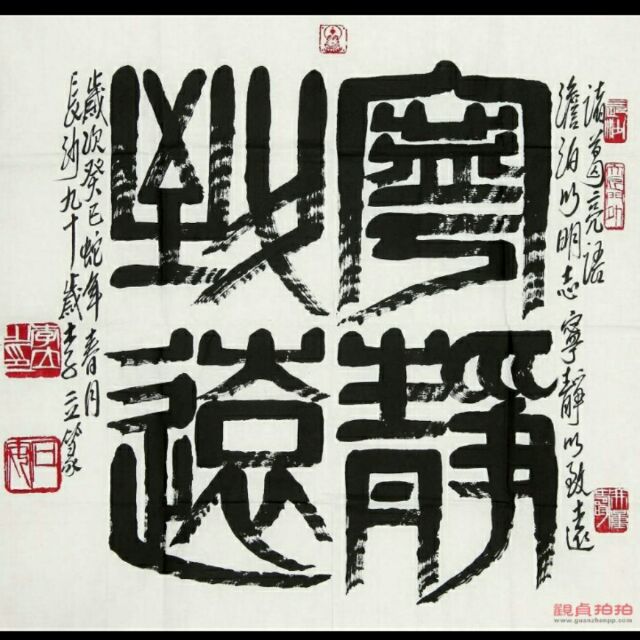 諸葛亮語
澹泊以明志寧靜以致遠
寧靜
致遠
歲次癸巳蛇年春月
長沙九十歲李立篆
觀貞拍拍
www.guanzhenpp.com